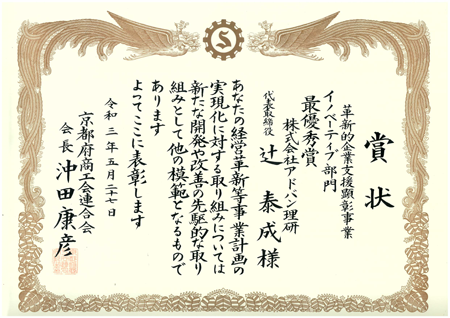 賞状
革新的企業支援顕彰事業
イノベーティブ部門
最優秀賞
株式会社アドバン理研
代表取締役
辻 泰成 様
あなたの経営革新等事業計画の
実現化に対する取り組みについては
新たな開発や改善の先駆的な取り
組みとして他の模範となるもので
あります
よってここに表彰します
令和三年五月二十七日
京都府商工会連合会
会長 沖田康彦